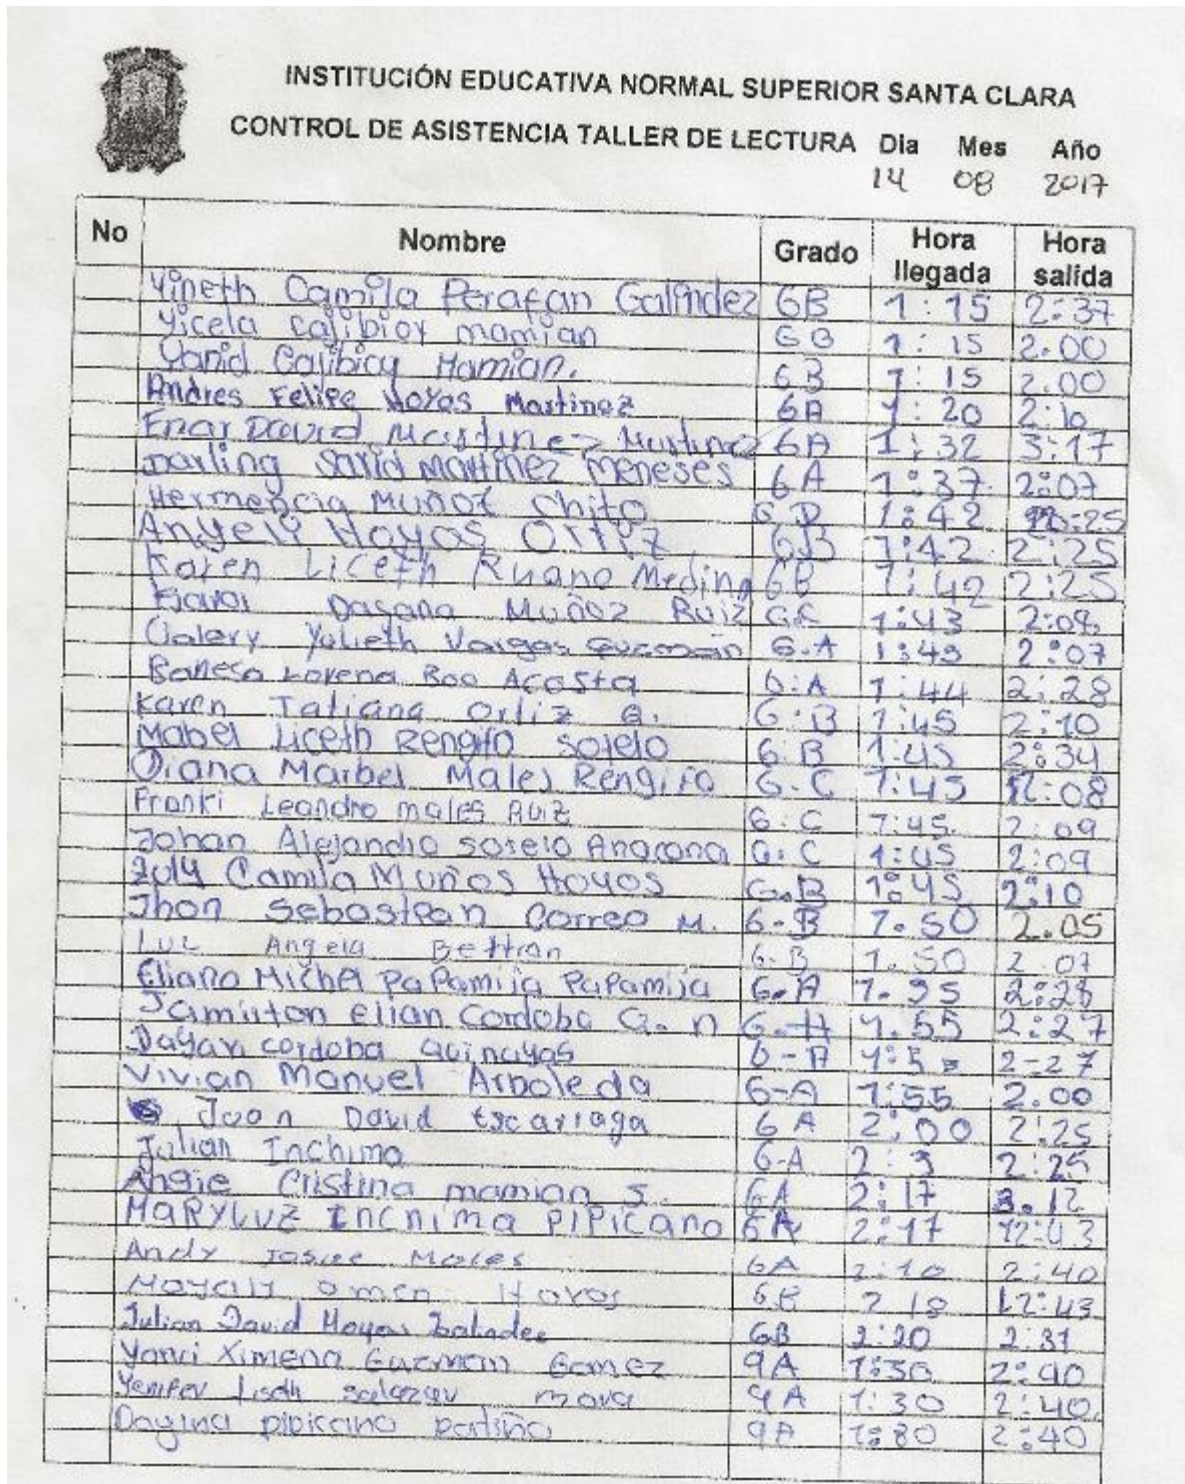 INSTITUCIÓN EDUCATIVA NORMAL SUPERIOR SANTA CLARA
CONTROL DE ASISTENCIA TALLER DE LECTURA Dia Mes Año
14 08 2017
No Nombre Grado Hora llegada Hora salida
Yineth Camila Perafan Galindez 6B 1:15 2:37
Yicela cajibioy mamian 6B 1:15 2.00
Yanid Cajibioy Mamian. 6B 1:15 2.00
Andres Felipe Hoyos Martinez 6A 1:20 2:10
Enar David Martinez Martinez 6A 1:32 3:17
Darling Sarid Martinez meneses 6A 1:37 2:07
Hermencia Muñoz Chito 1:42
Angely Hoyos Ortiz 6B 1:42 2:25
Karen Liceth Ruano Medina 6B 1:42 2:25
Dagana Muñoz Ruiz 1:43 2:08
Valery Yulieth Vargas Guzman 6.A 1:43 2:07
Banesa Lorena Boo Acosta 6:A 1:44 2:28
Karen Tatiana Ortiz G. 6:B 1:45 2:10
Mabel Liceth Rengifo sotelo 6.B 1:45 2:34
Diana Marbel Males Rengifo 6.C 1:45 :08
Franki Leandro males Ruiz 6.C 1:45 2:09
Johan Alejandro sotelo Anacona 6:C 1:45 2:09
Zuly Camila Muños Hoyos 6.B 1:45 2:10
Jhon Sebastean Correo M. 6-B 1.50 2.05
Luz Angela Beltran 6-B 1.50 2.07
Eliana Michel Papamija Papamija 6.A 2:28
Jamilton Elian Cordoba Q. n 1.55 2:27
Dayan cordoba Quinayas 6-A 2-27
Vivian Manuel Arboleda 6-A 1:55 2.00
Juan David Escarriaga 6A 2:00 2:25
Julian Inchima 6-A 2:3 2:25
Angie Cristina mamian S. 6A 2:17 3.12
MARYLUZ Inchima PIPICANO 6A 2:17 12:43
Andy Josue Moles 6A 2:10 2:40
Mayaly omen Hoyos 6B 2 18 12:43
Julian David Hoyos 6B 2:20 2:31
Yanci Ximena Guzman Gomez 9A 1:30 2:40
Yenifer Liseth salazar 9A 1:30 2:40
Dayana pipicano patiño 9A 1:30 2:40